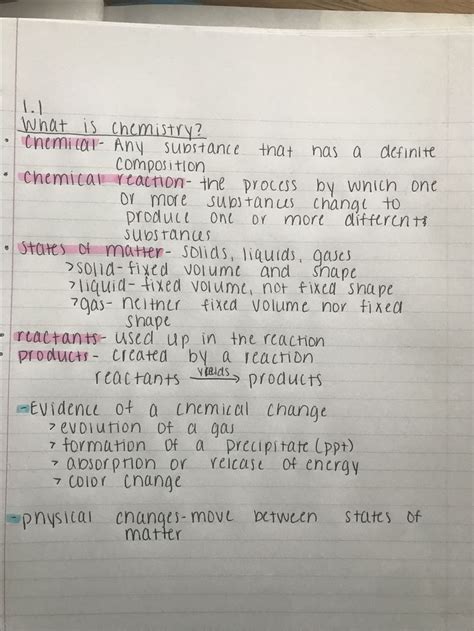 1.1
What is chemistry?
• chemical- Any substance that has a definite
composition
• chemical reaction- the process by which one
or more substances change to
produce one or more differents
substances
• states of matter- solids, liquids, gases
>solid- fixed volume and shape
>liquid- fixed volume, not fixed shape
>gas- neither fixed volume nor fixed
shape
• reactants- used up in the reaction
• products- created by a reaction
yields
reactants → products
-Evidence of a chemical change
> evolution of a gas
> formation of a precipitate (ppt)
> absorption or release of energy
> color change
-physical changes-move between states of
matter